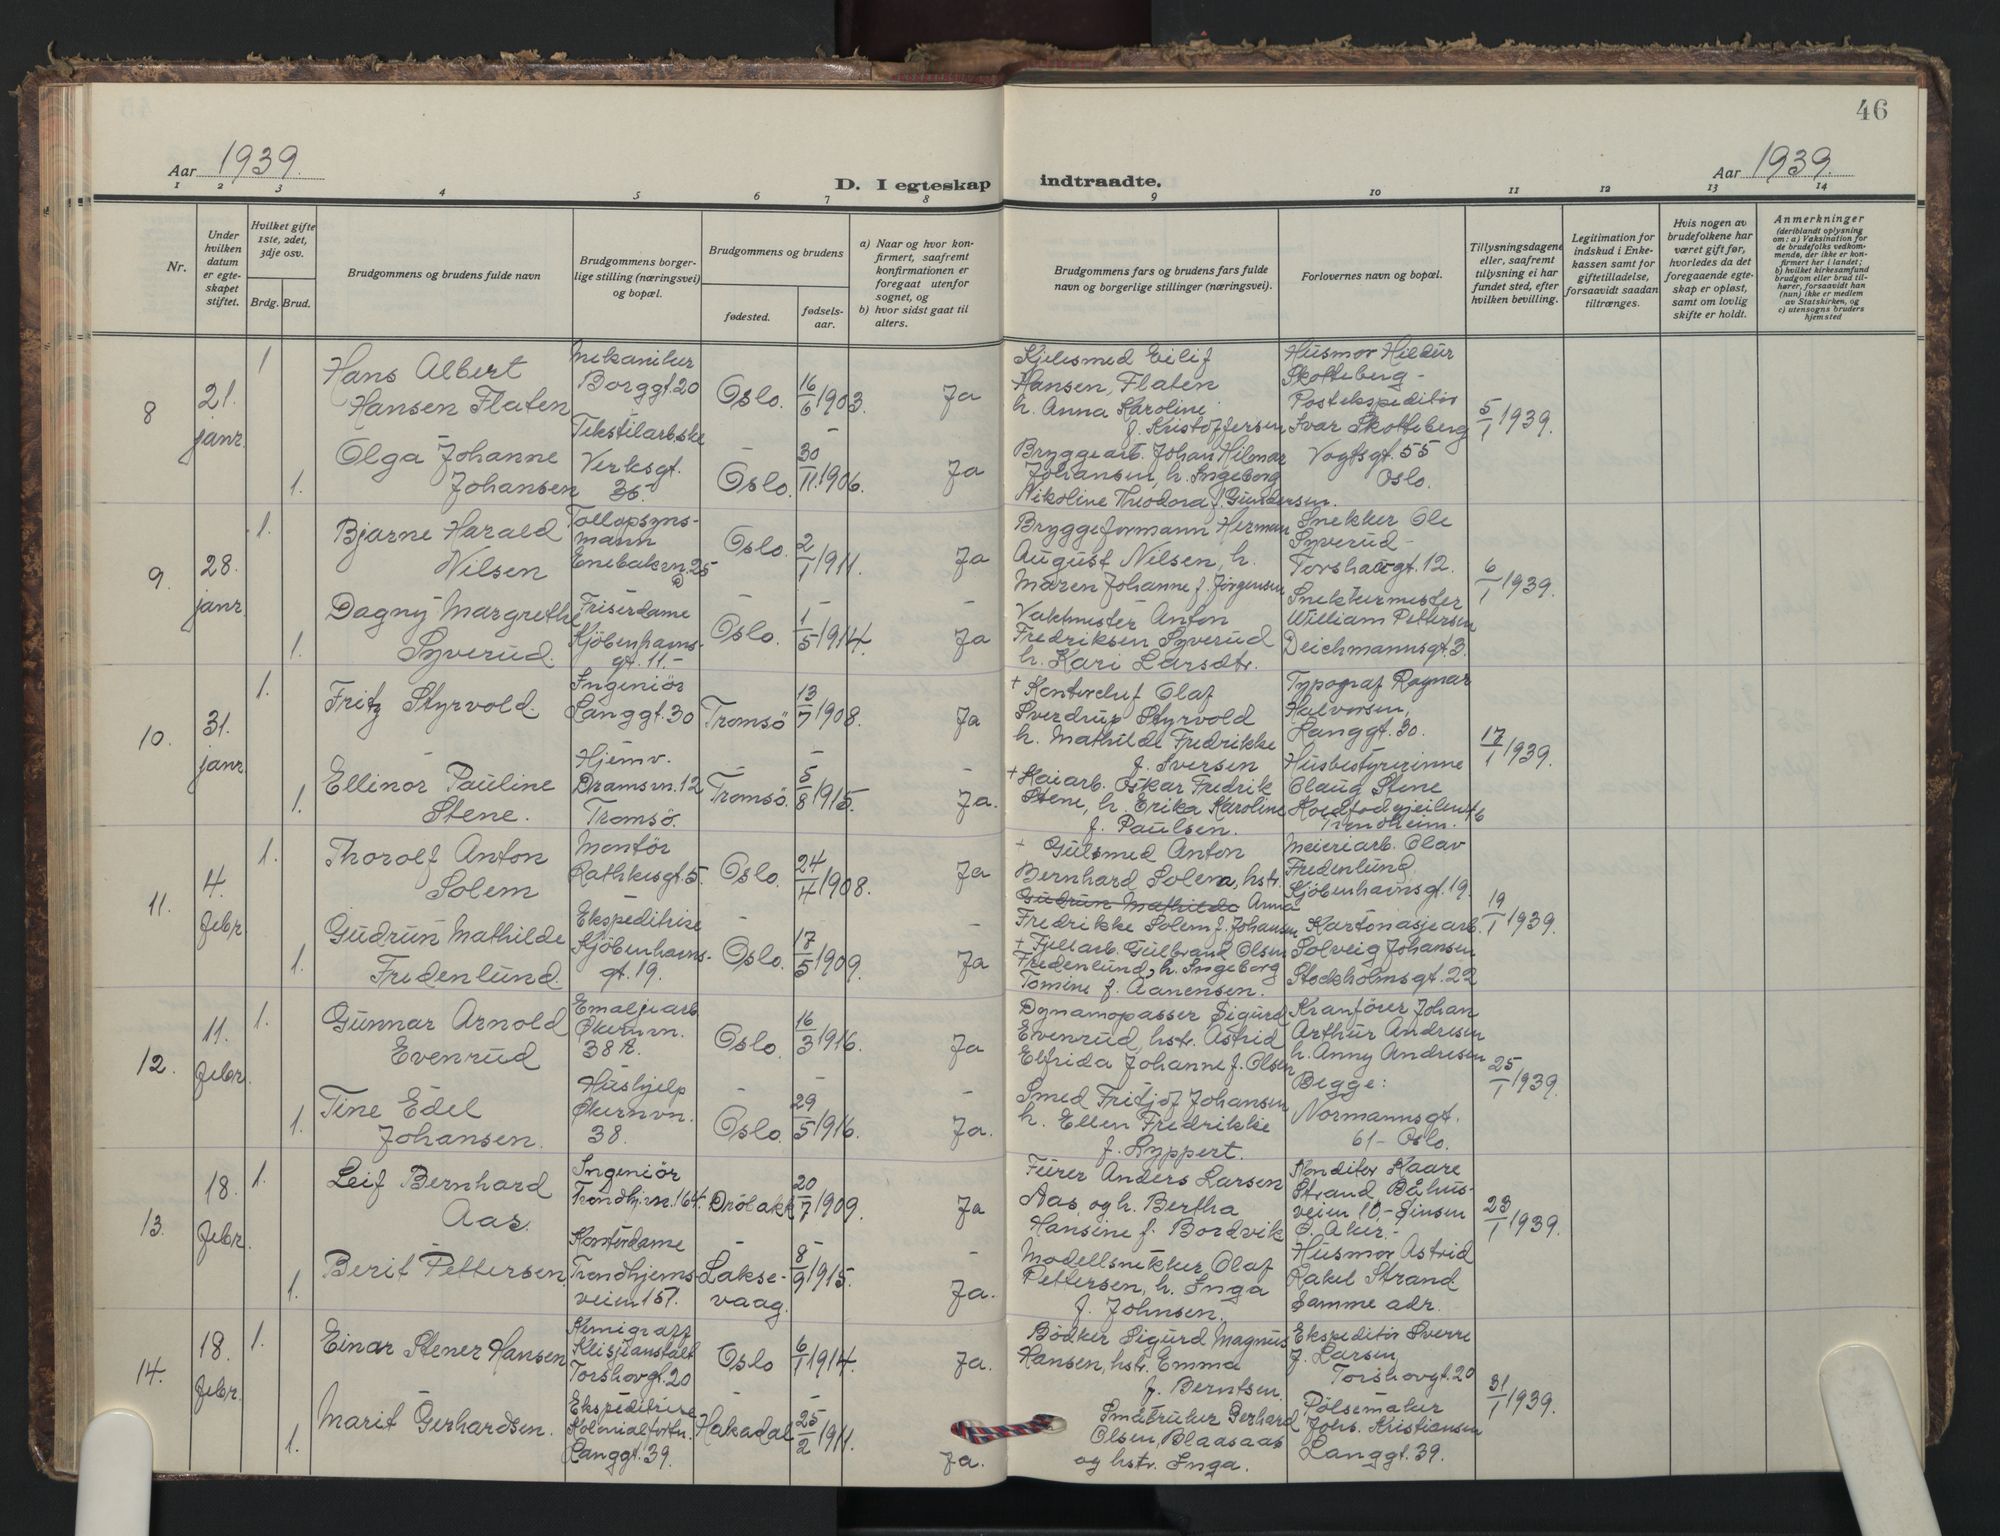 46
Aar 1939.
D. I egteskap indtraadte.
Aar 1939.
1 2 3 4 5 6 7 8 9 10 11 12 13 14
Nr.
Under hvilken datum er egteskapet stiftet.
Hvilket gifte 1ste, 2det, 3dje osv.
Brdg. Brud.
Brudgommens og brudens fulde navn
Brudgommens borgerlige stilling (næringsvei) og bopæl.
Brudgommens og brudens
fødested.
fødselsaar.
a) Naar og hvor konfirmert, saafremt konfirmationen er foregaat utenfor sognet, og
b) hvor sidst gaat til alters.
Brudgommens fars og brudens fars fulde navn og borgerlige stillinger (næringsvei).
Forlovernes navn og bopæl.
Tillysningsdagene eller, saafremt tillysning ei har fundet sted, efter hvilken bevilling.
Legitimation for indskud i Enkekassen samt for giftetilladelse, forsaavidt saadan tiltrænges.
Hvis nogen av brudefolkene har været gift før, hvorledes da det foregaaende egteskap er opløst, samt om lovlig skifte er holdt.
Anmerkninger
(deriblandt oplysning om: a) Vaksination for de brudefolks vedkommende, der ikke er konfirmert her i landet; b) hvilket kirkesamfund brudgom eller brud tilhører, forsaavidt han (hun) ikke er medlem av Statskirken, og c) utensogns bruders hjemsted
8 21. janr.
1 Hans Albert Hansen Flaten
Mekaniker Borggt. 20
Oslo. 16/6 1903. Ja
Kjelesmed Eilif
Hansen, Flaten
h. Anna Karoline
f. Kristoffersen
Husmor Hildur
Skotteberg -
Postekspeditør
Ivar Skotteberg
Vogtsgt. 55
Oslo.
5/1 1939.
1. Olga Johanne Johansen
Tekstilarbske
Verksgt. 36.
Oslo. 30/11. 1906. Ja
Bryggearb. Johan Hilmar
Johansen, h. Ingeborg
Nikoline Theodora f. Gundersen.
9. 28. janr
1. Bjarne Harald Nilsen
Tollopsynsmann
Enebakvn. 25 D
Oslo. 2/1 1911. Ja
Bryggeformann Herman
August Nilsen, h.
Maren Johanne f. Jørgensen
Snekker Ole
Syverud -
Torshavgt. 12.
Snekkermester
William Pettersen
Deichmannsgt. 3.
6/1 1939.
1. Dagny Margrethe Syverud.
Friserdame
Kjøbenhavnsgt. 11.-
Oslo. 1/5 1914. Ja
Vaktmester Anton
Fredriksen Syverud
h. Kari Larsdtr.
10. 31. janr
1. Fritz Styrvold.
Ingeniør
Langgt. 30
Tromsö 13/7 1908. Ja
+ Kontorchef Olaf
Sverdrup Styrvold
h. Mathilde Fredrikke
f. Iversen
Typograf Ragnar
Halvorsen,
Langgt. 30.
Husbestyrerinne
Olaug Stene
Trondheim.
17/1 1939.
1. Ellinor Pauline Stene.
Hjemv.
Dramsvn. 12
Tromsö.
Tromsö. 5/8 1915. Ja.
+ Kaiarb. Oskar Fredrik
Stene, h. Erika Karoline
f. Paulsen.
11. 4. febr
1. Thorolf Anton Solem
Montör
Rathkesgt. 5.
Oslo. 24/4 1908. Ja
+ Gulsmed Anton
Bernhard Solem, hstr.
Gudrun Mathilde Anna
Fredrikke Solem f. Johansen
Meieriarb. Olav
Fredenlund,
Kjöbenhavnsgt. 19.
Kartonasjearb.
Solveig Johansen
Stockholmsgt. 22
19/1 1939.
1. Gudrun Mathilde Fredenlund.
Ekspeditrise
Kjöbenhavnsgt. 19.
Oslo. 17/5 1909. Ja
+ Fjellarb. Gulbrand Olsen
Fredenlund, h. Ingeborg
Tomine f. Aanensen.
12. 11. febr.
1. Gunnar Arnold Evenrud
Emaljearb
Økernvn. 38 A.
Oslo. 16/3 1916. Ja
Dynamopasser Sigurd
Evenrud, hstr. Astrid
Elfrida Johanne f. Olsen
Kranfører Johan
Arthur Andresen
h. Anny Andresen
Begge:
Normannsgt.
61 - Oslo.
25/1 1939.
1. Tine Edel Johansen.
Hushjelp
Økernvn. 38.
Oslo. 29/5 1916. Ja.
Smed Fritjof Johansen
h. Ellen Fredrikke
f. Lyppert.
13. 18. febr.
1. Leif Bernhard Aas.
Ingeniör
Trondhj.vn. 164.
Dröbakk 20/7 1909. Ja
Fürer Anders Larsen
Aas, og h. Bertha
Hansine f. Bordvik
Konditor Kaare
Strand Båhusveien 10.- Sinsen
Ö. Aker.-
Husmor Astrid
Rakel Strand
samme adr.
23/1 1939.
1. Berit Pettersen.
Kontordame
Trondhjemsveien 157.
Laksevaag. 8/9 1915. Ja.
Modellsnekker Olaf
Pettersen, h. Inga
f. Johnsen.
14. 18. febr.
1. Einar Stener Hansen
Kemigraff
Klisjeanstalt
Torshovgt. 20
Oslo 6/1 1914. Ja.
Bødker Sigurd Magnus
Hansen, hstr. Emma
f. Berntsen.
Ekspeditör Sverre
J. Larsen,
Torshovgt. 20
Pølsemaker
Johs. Kristiansen
Langgt. 39.
31/1 1939.
1. Marit Gerhardsen.
Ekspeditrise
Kolonialforrtn.
Langgt. 39.
Hakadal 25/2 1911. Ja.
Småbruker Gerhard
Olsen, Blaasaas
og hstr. Inga.